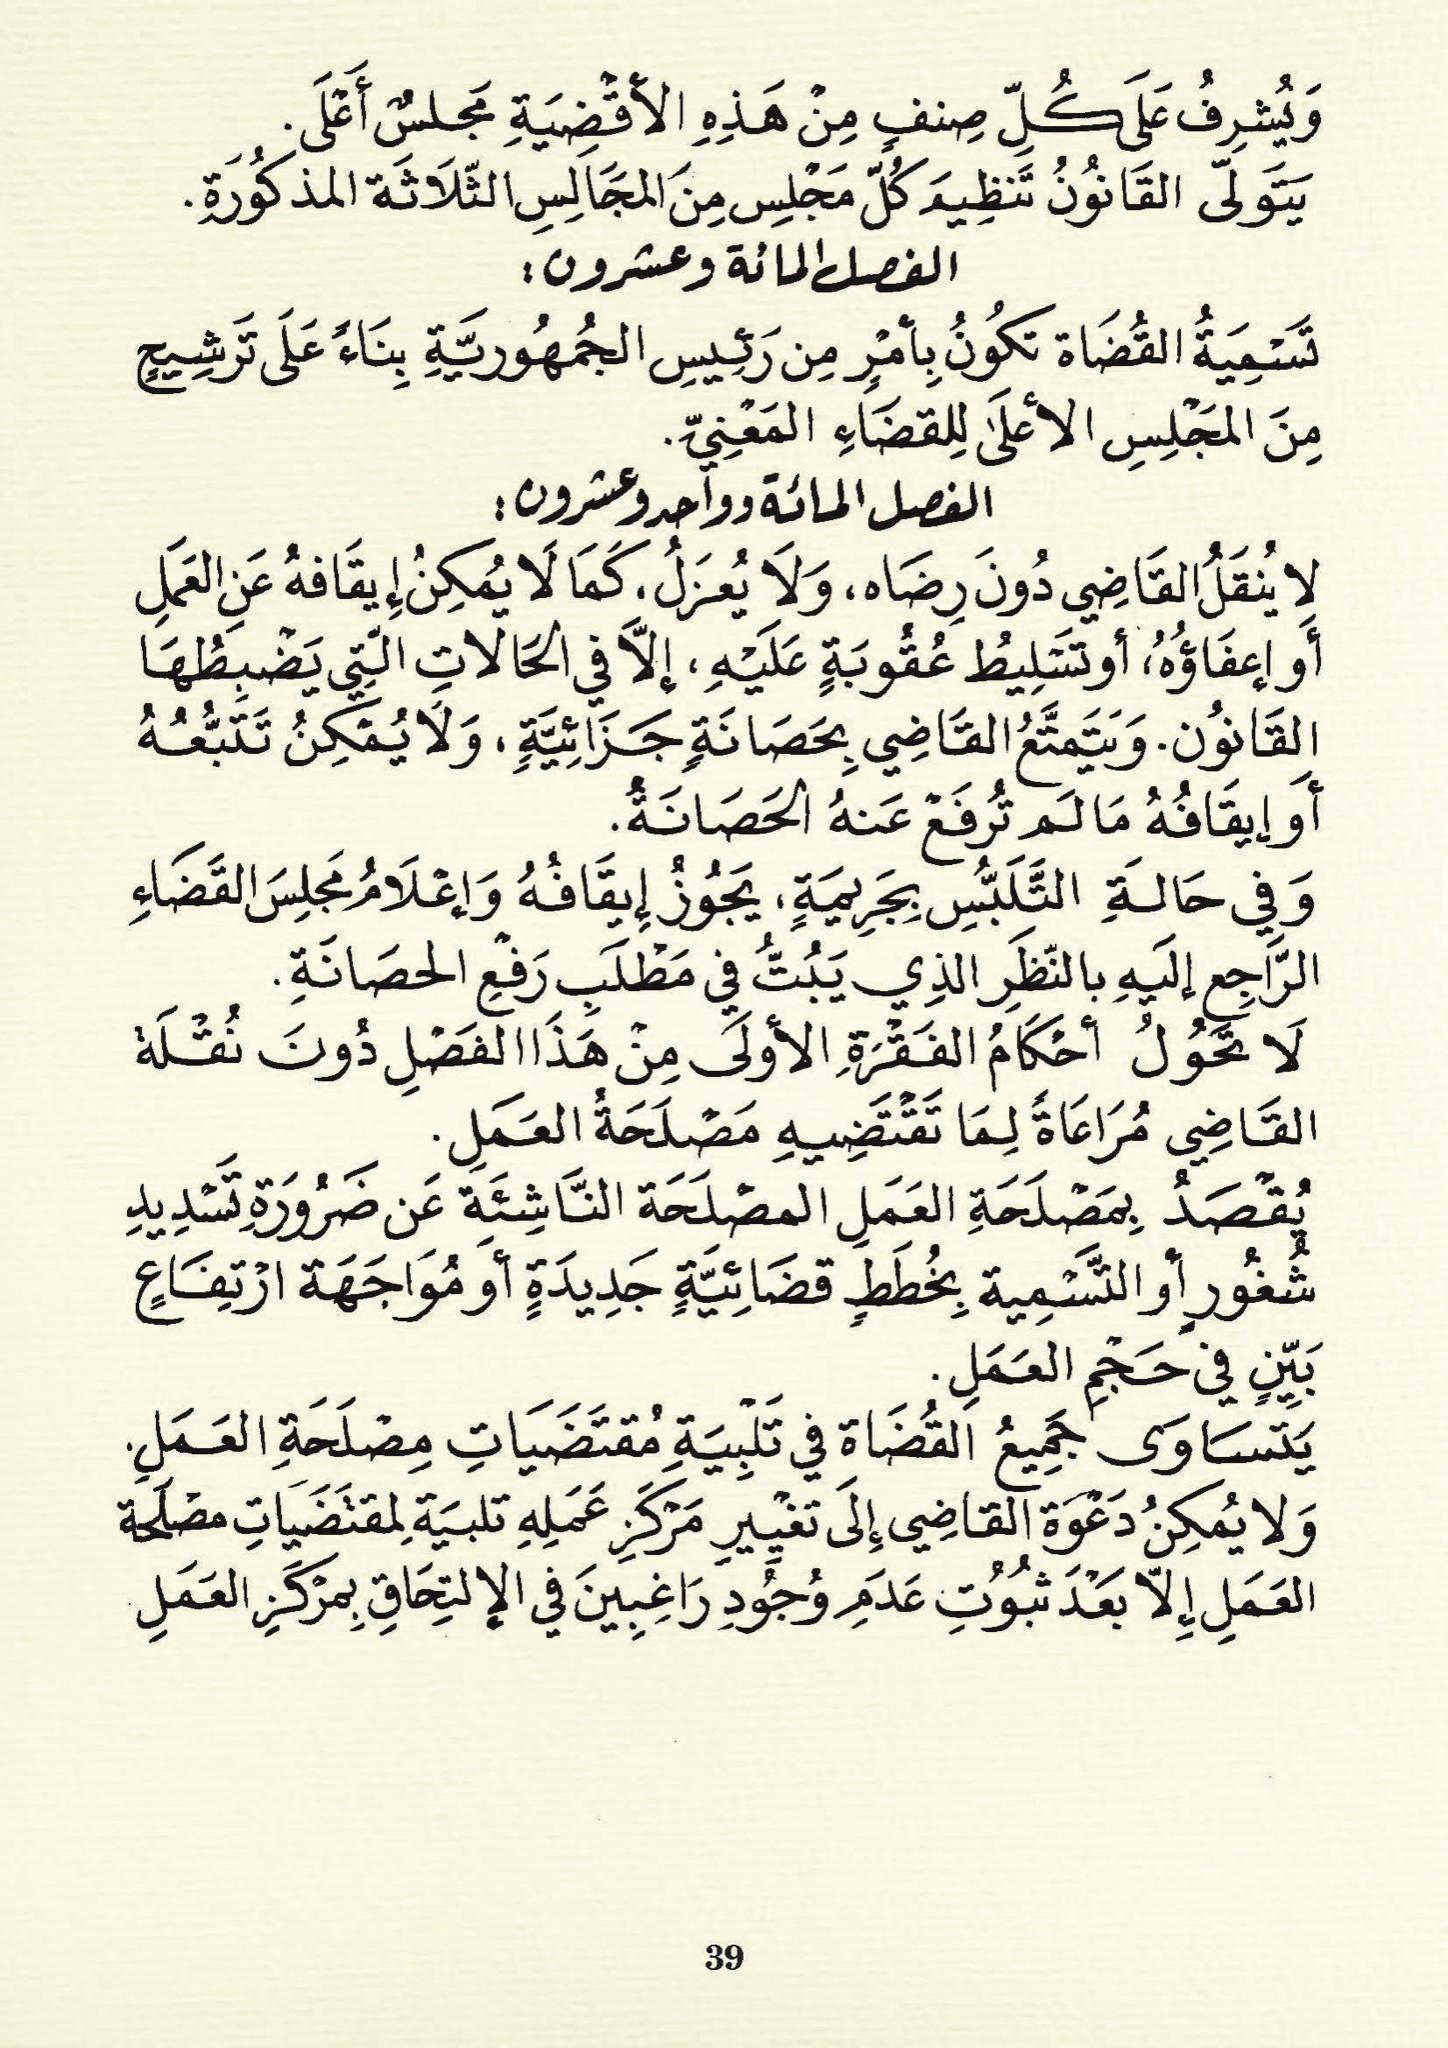 وَيُشرِفُ عَلَى كُلِّ صِنفٍ مِنْ هَذِهِ الأقْضِيَةِ مَجلسٌ أَعْلَى.
يَتَوَلّى القَانُونُ تَنظِيمَ كُلّ مَجْلِسٍ مِنَ المجَالِسِ الثّلَاثَة المذكُورَةِ.
الفصل المائة وعشرون:
تَسْمِيَةُ القُضَاة تكُونُ بِأمْرٍ مِن رَئِيسِ الجُمهُوريَّةِ بِنَاءً عَلَى تَرشِيحٍ
مِنَ المجَْلِسِ الأعلَى لِلقضَاءِ المَعْنِيّ.
الفصل المائة وواحد وعشرون:
لا يُنقَلُ القَاضِي دُونَ رِضَاه، وَلَا يُعزَلُ، كَمَا لَا يُمكِنُ إيقَافهُ عَنِ العَمَلِ
أو إعفَاؤُهُ، أو تسْلِيطُ عُقُوبَةٍ عَلَيْهِ، إلاَّ في الحَالاتِ الّتِي يَضْبِطُهَا
القَانُون. وَيَتَمتَّعُ القَاضِي بِحَصَانَةٍ جَزَائِيَّةٍ، وَلَا يُمْكِنُ تَتَبُّعُهُ
أو إيقَافُهُ مَا لَم تُرفَعْ عَنهُ الحَصَانَةُ.
وَفِي حَالةِ التَّلَبُّسِ بِجَرِيمَةٍ، يَجُوزُ إيقَافُهُ وَإعْلَامُ مَجلِسَ القَضَاءِ
الرَّاجِعِ إليَهِ بالنّظَرِ الذِي يَبُتُّ فِي مَطْلَبِ رَفْعِ الحصَانَةِ.
لَا تحَُولُ أحْكَامُ الفَقْرَةِ الأولَى مِنْ هَذَا الفَصْلِ دُونَ نُقْلَة
القَاضِي مُرَاعَاةً لِمَا تَقْتَضِيهِ مَصْلَحَةُ العَمَلِ.
يُقْصَدُ بِمَصْلَحَةِ العَمَلِ المصْلَحَة النَّاشِئَةِ عَن ضَرُورَةِ تَسْدِيدِ
شُغُورٍ أو التَّسْمِية بِخُطَطٍ قضَائِيَّةٍ جَدِيدَةٍ أو مُوَاجَهَة ارْتِفَاعٍ
بَيِّنٍ فِي حَجْمِ العَمَلِ.
يَتسَاوَى جَمِيعُ القُضَاة فِي تَلْبِيَةِ مُقتَضَيَاتِ مِصْلَحَةِ العَمَلِ.
وَلا يُمكِنُ دَعْوَة القاضِي إلَى تغْيِيرِ مَرْكَزِ عَمَلِهِ تلبيَةِ لمقتَضَيَاتِ مصْلَحة
العَمَلِ إلاّ بَعْدَ ثبُوُتِ عَدَمِ وُجُودِ رَاغِبِينَ فِي الإلتِحَاقِ بِمرْكَزِ العَمَلِ
39